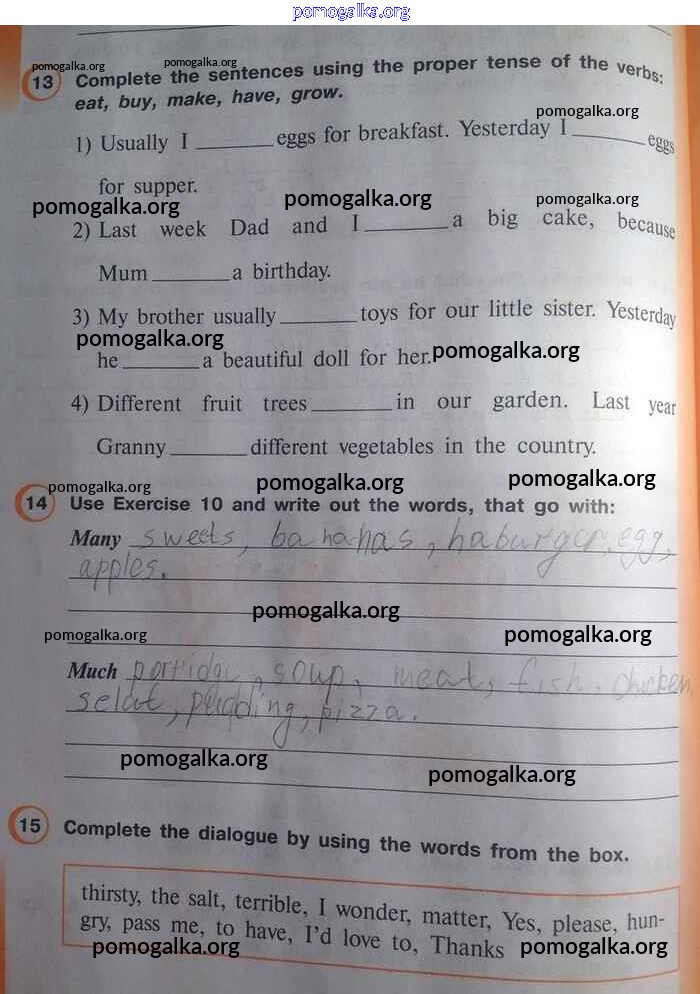 pomogalka.org
pomogalka.org pomogalka.org
13 Complete the sentences using the proper tense of the verbs:
eat, buy, make, have, grow.
pomogalka.org
1) Usually I ______ eggs for breakfast. Yesterday I ______ eggs
for supper.
pomogalka.org pomogalka.org pomogalka.org
2) Last week Dad and I ______ a big cake, because
Mum ______ a birthday.
3) My brother usually ______ toys for our little sister. Yesterday
pomogalka.org
he ______ a beautiful doll for her. pomogalka.org
4) Different fruit trees ______ in our garden. Last year
Granny ______ different vegetables in the country.
pomogalka.org pomogalka.org pomogalka.org
14 Use Exercise 10 and write out the words, that go with:
Many sweets, bananas, haburger, egg,
apples.
pomogalka.org
pomogalka.org pomogalka.org
Much porridge, soup, meat, fish, chicken,
selat, pudding, pizza.
pomogalka.org pomogalka.org
15 Complete the dialogue by using the words from the box.
thirsty, the salt, terrible, I wonder, matter, Yes, please, hun-
gry, pass me, to have, I'd love to, Thanks
pomogalka.org pomogalka.org